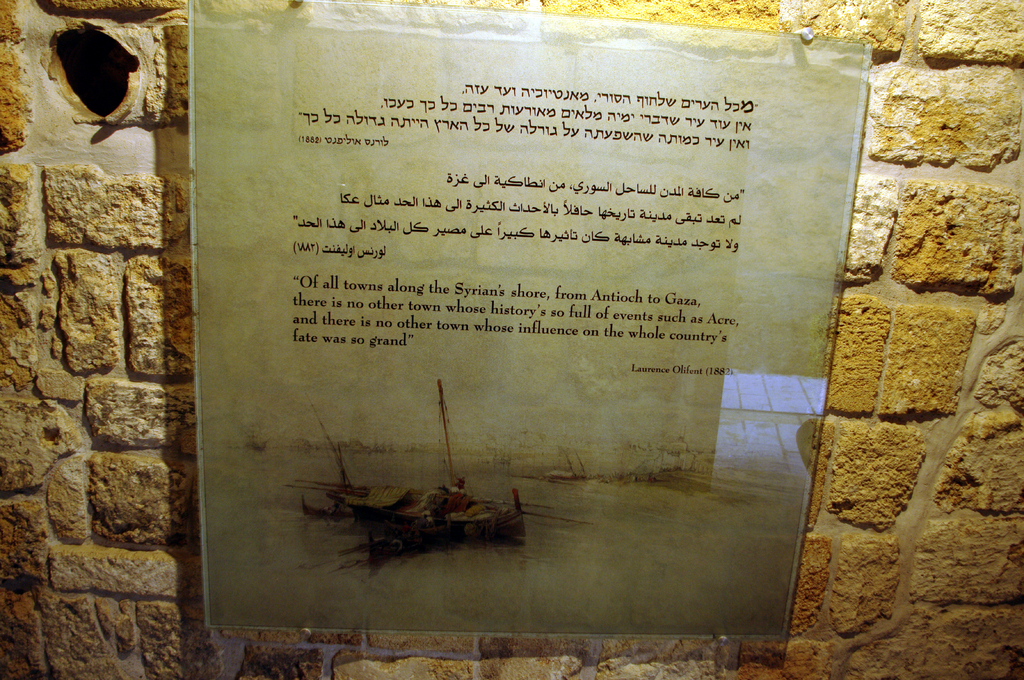 "מכל הערים שלחוף הסורי, מאנטיוכיה ועד עזה,
אין עוד עיר שדברי ימיה מלאים מאורעות רבים כל כך כעכו,
ואין עיר כמותה שהשפעתה על גורלה של כל הארץ הייתה גדולה כל כך"
לורנס אוליפנט (1882)
"من كافة المدن للساحل السوري، من انطاكية الى غزة
لم تعد تبقى مدينة تاريخها حافلاً بالأحداث الكثيرة الى هذا الحد مثال عكا
ولا توجد مدينة مشابهة كان تاثيرها كبيراً على مصير كل البلاد الى هذا الحد"
لورنس اوليفنت (١٨٨٢)
“Of all towns along the Syrian's shore, from Antioch to Gaza,
there is no other town whose history's so full of events such as Acre,
and there is no other town whose influence on the whole country's
fate was so grand”
Laurence Olifent (1882)